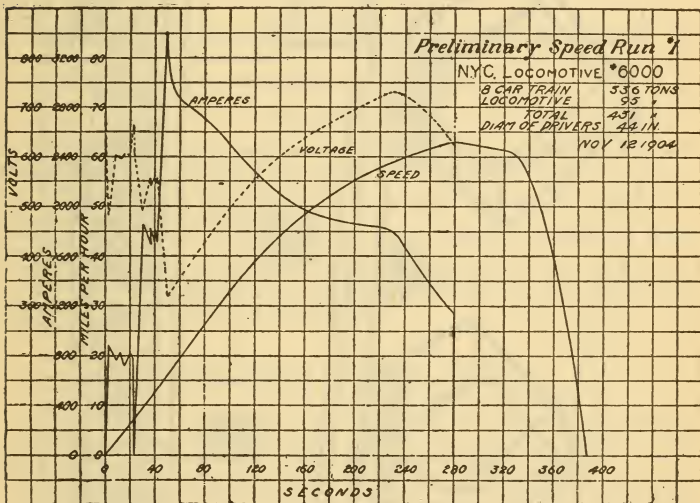 Preliminary Speed Run #1
NYC. LOCOMOTIVE #6000
8 CAR TRAIN 336 TONS
LOCOMOTIVE 95 "
TOTAL 431 "
DIAM OF DRIVERS 44 IN.
NOV 12 1904
AMPERES
VOLTAGE
SPEED
VOLTS
AMPERES
MILES PER HOUR
800 3200 80
700 2800 70
600 2400 60
500 2000 50
400 1600 40
300 1200 30
800 20
400 10
0 0
0 40 80 120 160 200 240 280 320 360 400
SECONDS